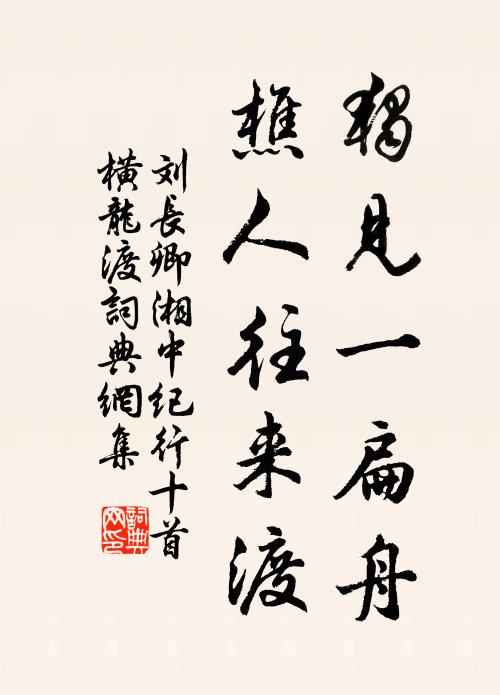 獨見一扁舟
樵人往来渡
刘長卿湘中纪行十首
橫龍渡詞典網集
詞典
网印